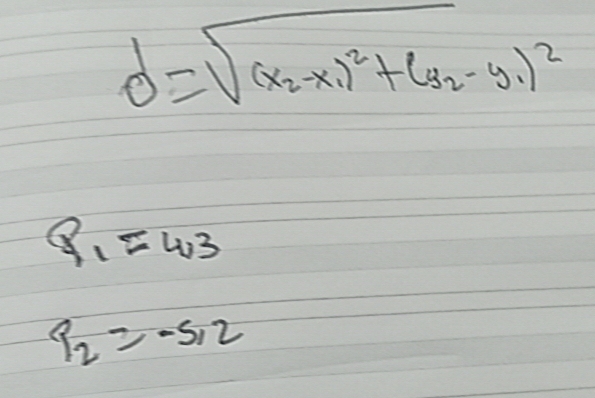 d=√(x₂-x₁)²+(y₂-y₁)²
P₁=4,3
P₂=-5,2